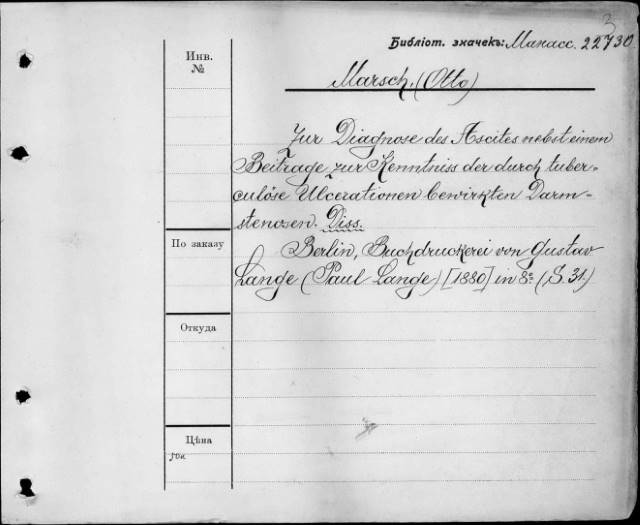 3
Библіот. значекъ: Манасс. 22730.
Инв.
№
Marsch. (Otto)
Zur Diagnose des Ascites nebst einem
Beitrage zur Kenntniss der durch tuber-
culöse Ulcerationen bewirkten Darm-
stenosen. Diss.
По заказу
Berlin, Buchdruckerei von Gustav
Lange (Paul Lange) [1880] in 8º. (S. 31.)
Откуда
Цѣна